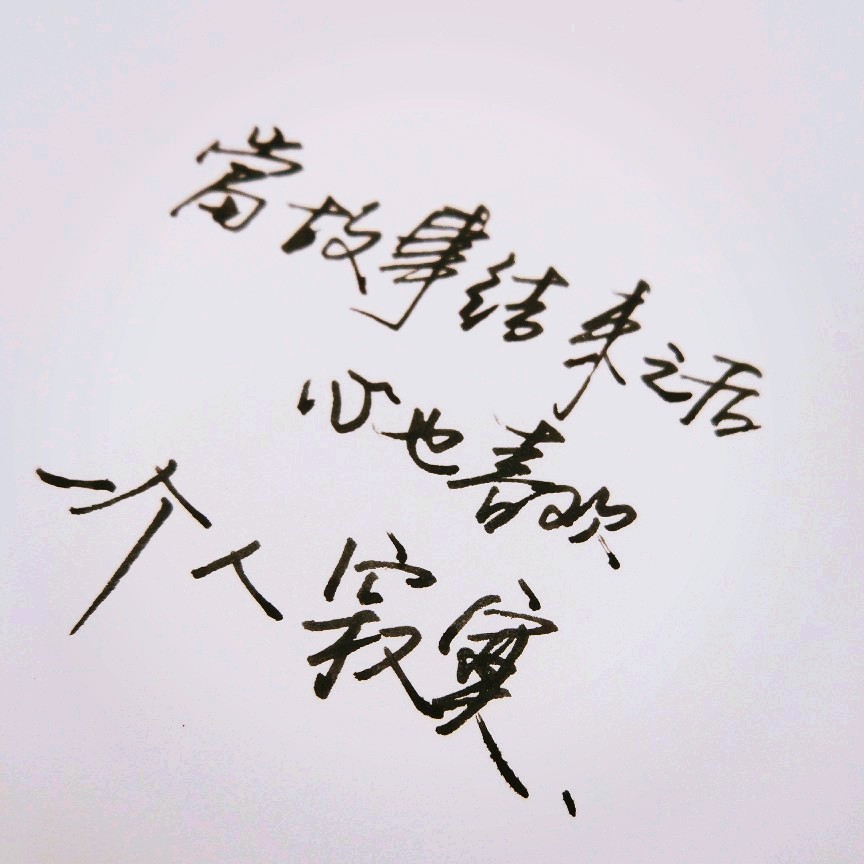 當故事结束之后
心也喜欢
一个人寂寞、